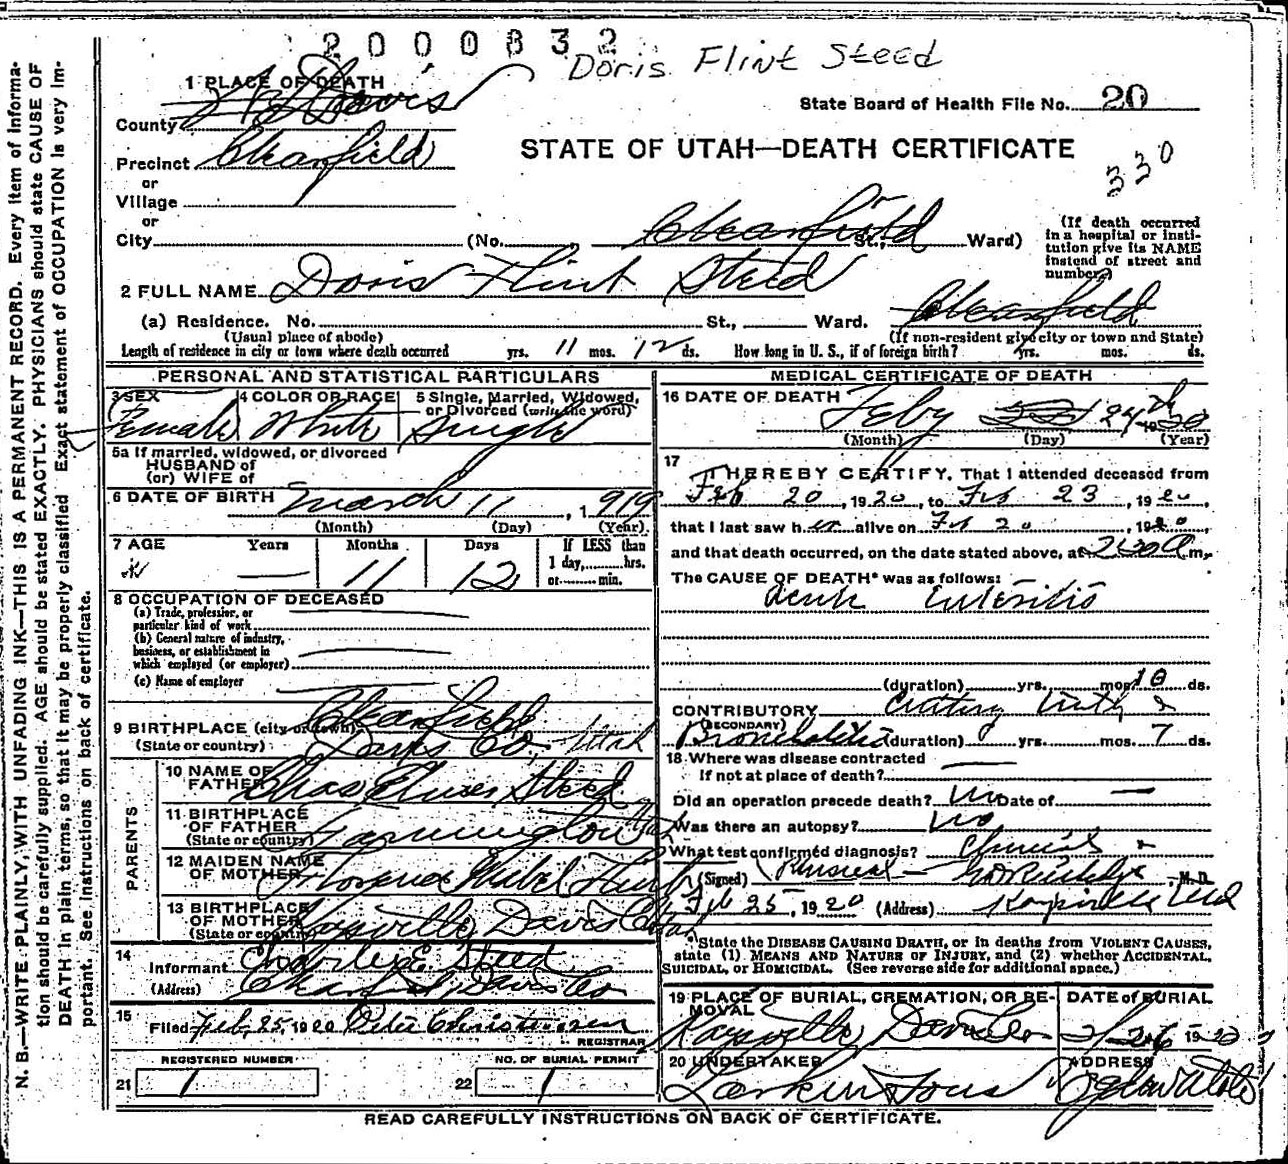 2000832
Doris Flint Steed
1 PLACE OF DEATH
State Board of Health File No. 20
County Davis
STATE OF UTAH—DEATH CERTIFICATE
330
Precinct Clearfield
or
Village
or
City (No. Clearfield St., Ward)
(If death occurred in a hospital or institution give its NAME instead of street and number)
2 FULL NAME Doris Flint Steed
(a) Residence. No. St., Ward. Clearfield
(Usual place of abode) (If non-resident give city or town and State)
Length of residence in city or town where death occurred yrs. 11 mos. 12 ds. How long in U. S., if of foreign birth? yrs. mos. ds.
PERSONAL AND STATISTICAL PARTICULARS
3 SEX Female
4 COLOR OR RACE White
5 Single, Married, Widowed, or Divorced (write the word) Single
5a If married, widowed, or divorced
HUSBAND of
(or) WIFE of
6 DATE OF BIRTH March 11, 1919
(Month) (Day) (Year)
7 AGE Years Months Days If LESS than
— 11 12 1 day, hrs.
or min.
8 OCCUPATION OF DECEASED
(a) Trade, profession, or
particular kind of work
(b) General nature of industry,
business, or establishment in
which employed (or employer)
(c) Name of employer
9 BIRTHPLACE (city or town) Clearfield
(State or country) Davis Co. Utah
PARENTS
10 NAME OF FATHER Chas Steed
11 BIRTHPLACE OF FATHER (State or country) Farmington Utah
12 MAIDEN NAME OF MOTHER Mabel Flint
13 BIRTHPLACE OF MOTHER (State or country) Kaysville, Davis Co Utah
14 Informant Charles E. Steed
(Address) Davis Co
15 Filed Feb. 25, 1920 Peter Christensen
REGISTRAR
REGISTERED NUMBER NO. OF BURIAL PERMIT
21 1 22 1
MEDICAL CERTIFICATE OF DEATH
16 DATE OF DEATH Feby 24th 1920
(Month) (Day) (Year)
17 I HEREBY CERTIFY, That I attended deceased from
Feb 20, 1920, to Feb 23, 1920,
that I last saw her alive on Feb 20, 1920,
and that death occurred, on the date stated above, at 2:30 a m.
The CAUSE OF DEATH* was as follows:
Acute Enteritis
(duration) yrs. mos. 10 ds.
CONTRIBUTORY Cutting teeth &
(SECONDARY)
Bronchitis (duration) yrs. mos. 7 ds.
18 Where was disease contracted
If not at place of death?
Did an operation precede death? No Date of —
Was there an autopsy? No
What test confirmed diagnosis? Clinical &
(Signed) Physical — M. D.
Feb 25, 1920 (Address) Kaysville Utah
*State the DISEASE CAUSING DEATH, or in deaths from VIOLENT CAUSES,
state (1) MEANS AND NATURE OF INJURY, and (2) whether ACCIDENTAL,
SUICIDAL, or HOMICIDAL. (See reverse side for additional space.)
19 PLACE OF BURIAL, CREMATION, OR REMOVAL DATE of BURIAL
Kaysville, Davis Co 2/26 1920
20 UNDERTAKER ADDRESS
Larkin & Sons Ogden Utah
READ CAREFULLY INSTRUCTIONS ON BACK OF CERTIFICATE.
N. B.—WRITE PLAINLY, WITH UNFADING INK—THIS IS A PERMANENT RECORD. Every item of informa-
tion should be carefully supplied. AGE should be stated EXACTLY. PHYSICIANS should state CAUSE OF
DEATH in plain terms, so that it may be properly classified. Exact statement of OCCUPATION is very im-
portant. See instructions on back of certificate.